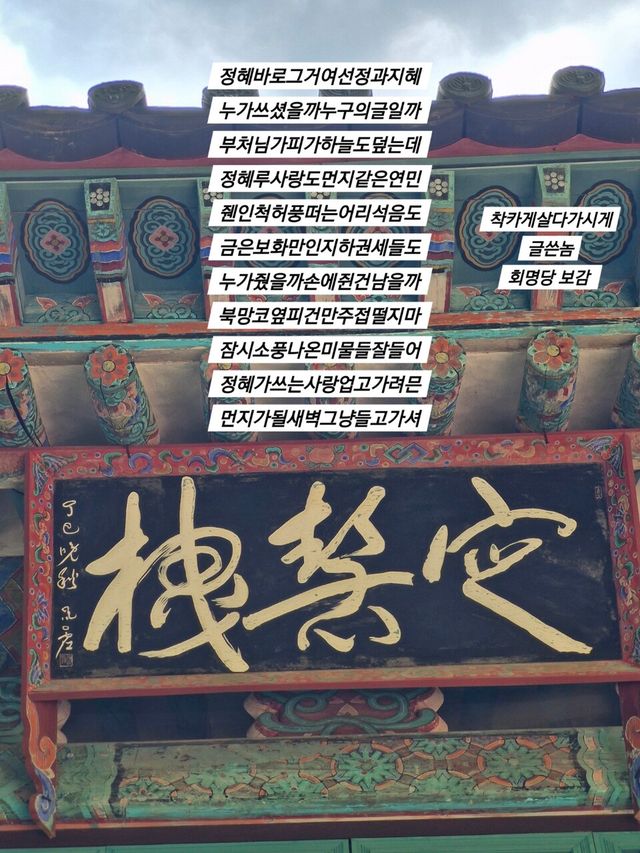 정혜바로그거여선정과지혜
누가쓰셨을까누구의글일까
부처님가피가하늘도덮는데
정혜루사랑도먼지같은연민
줸인척허풍떠는어리석음도
금은보화만인지하권세들도
누가줬을까손에쥔건남을까
북망코옆피건만주접떨지마
잠시소풍나온미물들잘들어
정혜가쓰는사랑업고가려믄
먼지가될새벽그냥들고가셔
착카게살다가시게
글쓴놈
회명당 보감
定慧楼
丁巳晩秋